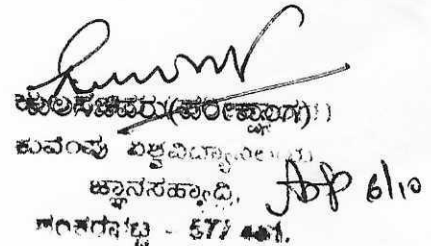 ಕುಲಸಚಿವರು(ಪರೀಕ್ಷಾಂಗ)
ಕುವೆಂಪು ವಿಶ್ವವಿದ್ಯಾನಿಲಯ
ಜ್ಞಾನಸಹ್ಯಾದ್ರಿ, 6/10
ಶಂಕರಘಟ್ಟ - 577 451.